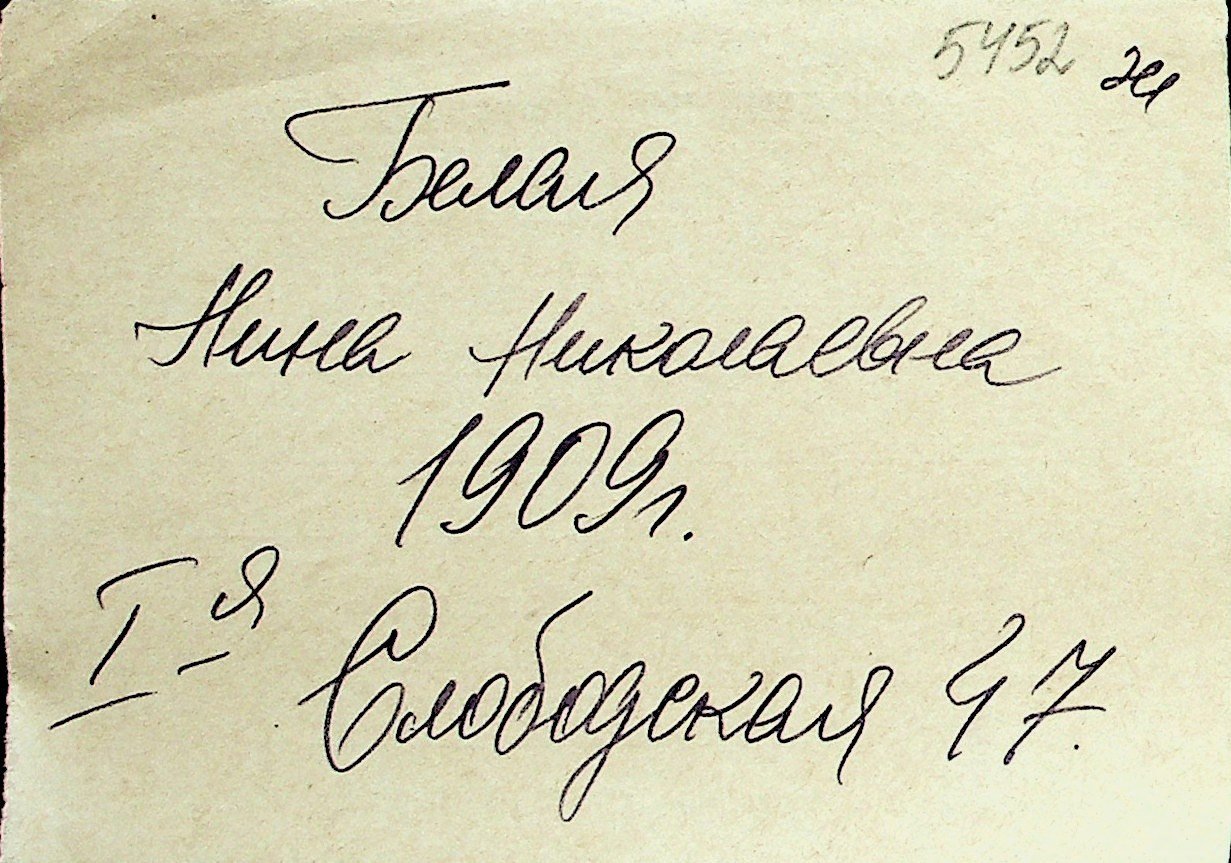 5452 ж
Белая
Нина Николаевна
1909г.
I-я Слободская 47.